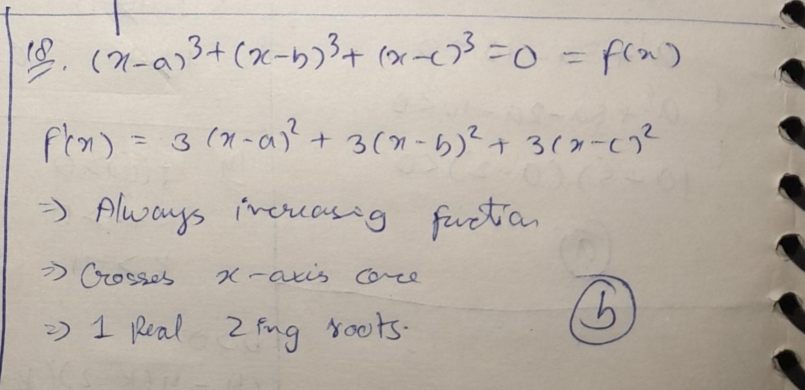 18. (x-a)³+(x-b)³+(x-c)³=0 = f(x)
f'(x) = 3(x-a)² + 3(x-b)² + 3(x-c)²
=> Always increasing function
=> Crosses x-axis once
=> 1 Real 2 img roots.
(b)